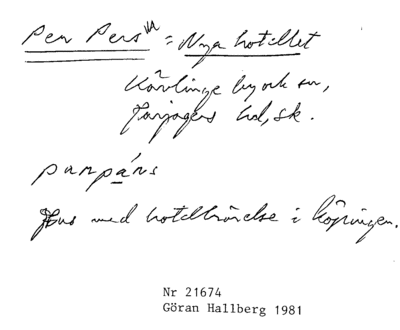 Per Pers = Nya hotellet
Kävlinge by och sn,
Harjagers hd, sk.
pærpǽrs
Hus med hotellrörelse i köpingen.
Nr 21674
Göran Hallberg 1981